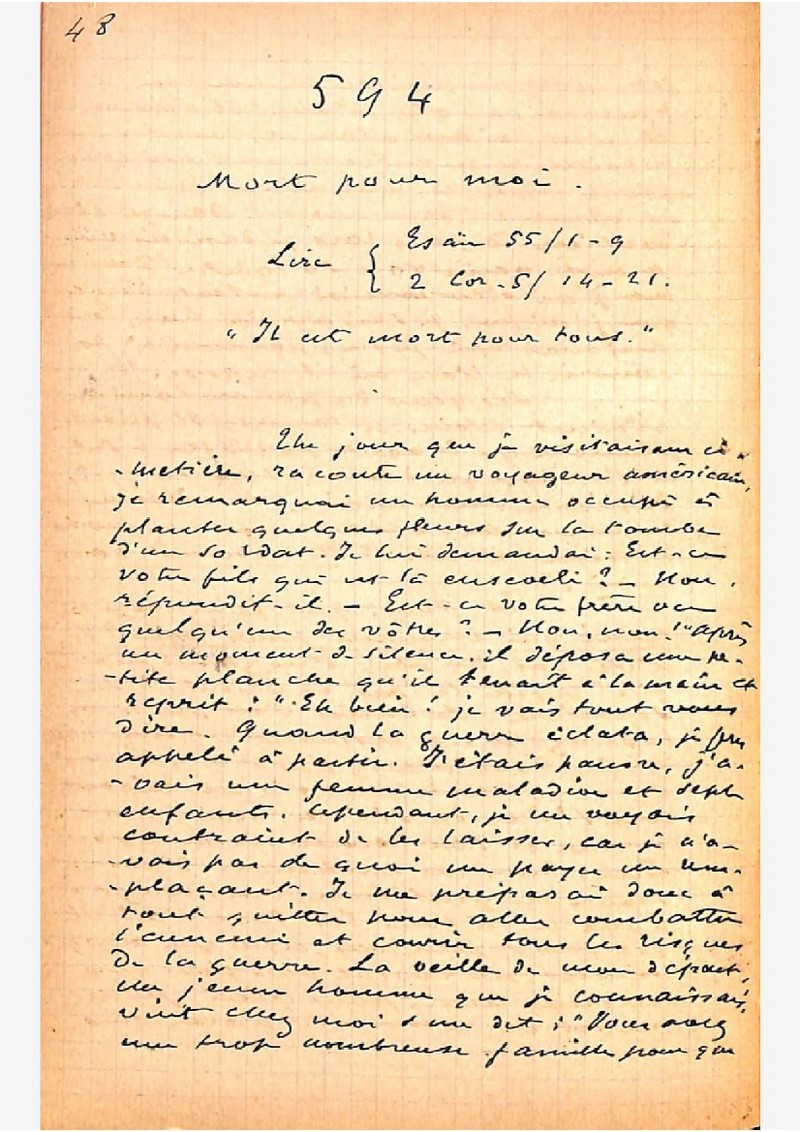 48
594
Mort pour moi.
Lire { Esaïe 55/1-9
2 Cor. 5/14-21.
"Il est mort pour tous."
Un jour que je visitais un ci-
-metière, raconte un voyageur américain,
je remarquai un homme occupé à
planter quelques fleurs sur la tombe
d'un soldat. Je lui demandai : Est-ce
votre fils qui est là enseveli ? - Non,
répondit-il. - Est-ce votre frère ou
quelqu'un des vôtres ? - Non, non !" Après
un moment de silence, il déposa une pe-
-tite planche qu'il tenait à la main et
reprit : "Eh bien ! je vais tout vous
dire. Quand la guerre éclata, je fus
appelé à partir. J'étais pauvre, j'a-
-vais une femme maladive et sept
enfants. Cependant, je me voyais
contraint de les laisser, car je n'a-
-vais pas de quoi me payer un rem-
-plaçant. Je me préparai donc à
tout quitter pour aller combattre
l'ennemi et courir tous les risques
de la guerre. La veille de mon départ,
un jeune homme que je connaissais,
vint chez moi & me dit : "Vous avez
une trop nombreuse famille pour que